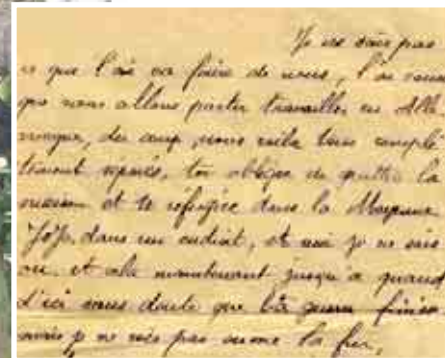 Je ne sais pas
ce que l'on va faire de nous, l'on
que nous allons partir travailler en Alle
magne, du coup, nous voilà tous complè
tement séparés, toi obligée de quitter la
maison et te réfugiée dans la Mayenne
Jojo, dans un endroit, et moi je ne sais
ou, et cela maintenant jusqu'a quand
d'ici sans doute que la guerre finisse
mais je ne vois pas la fin,